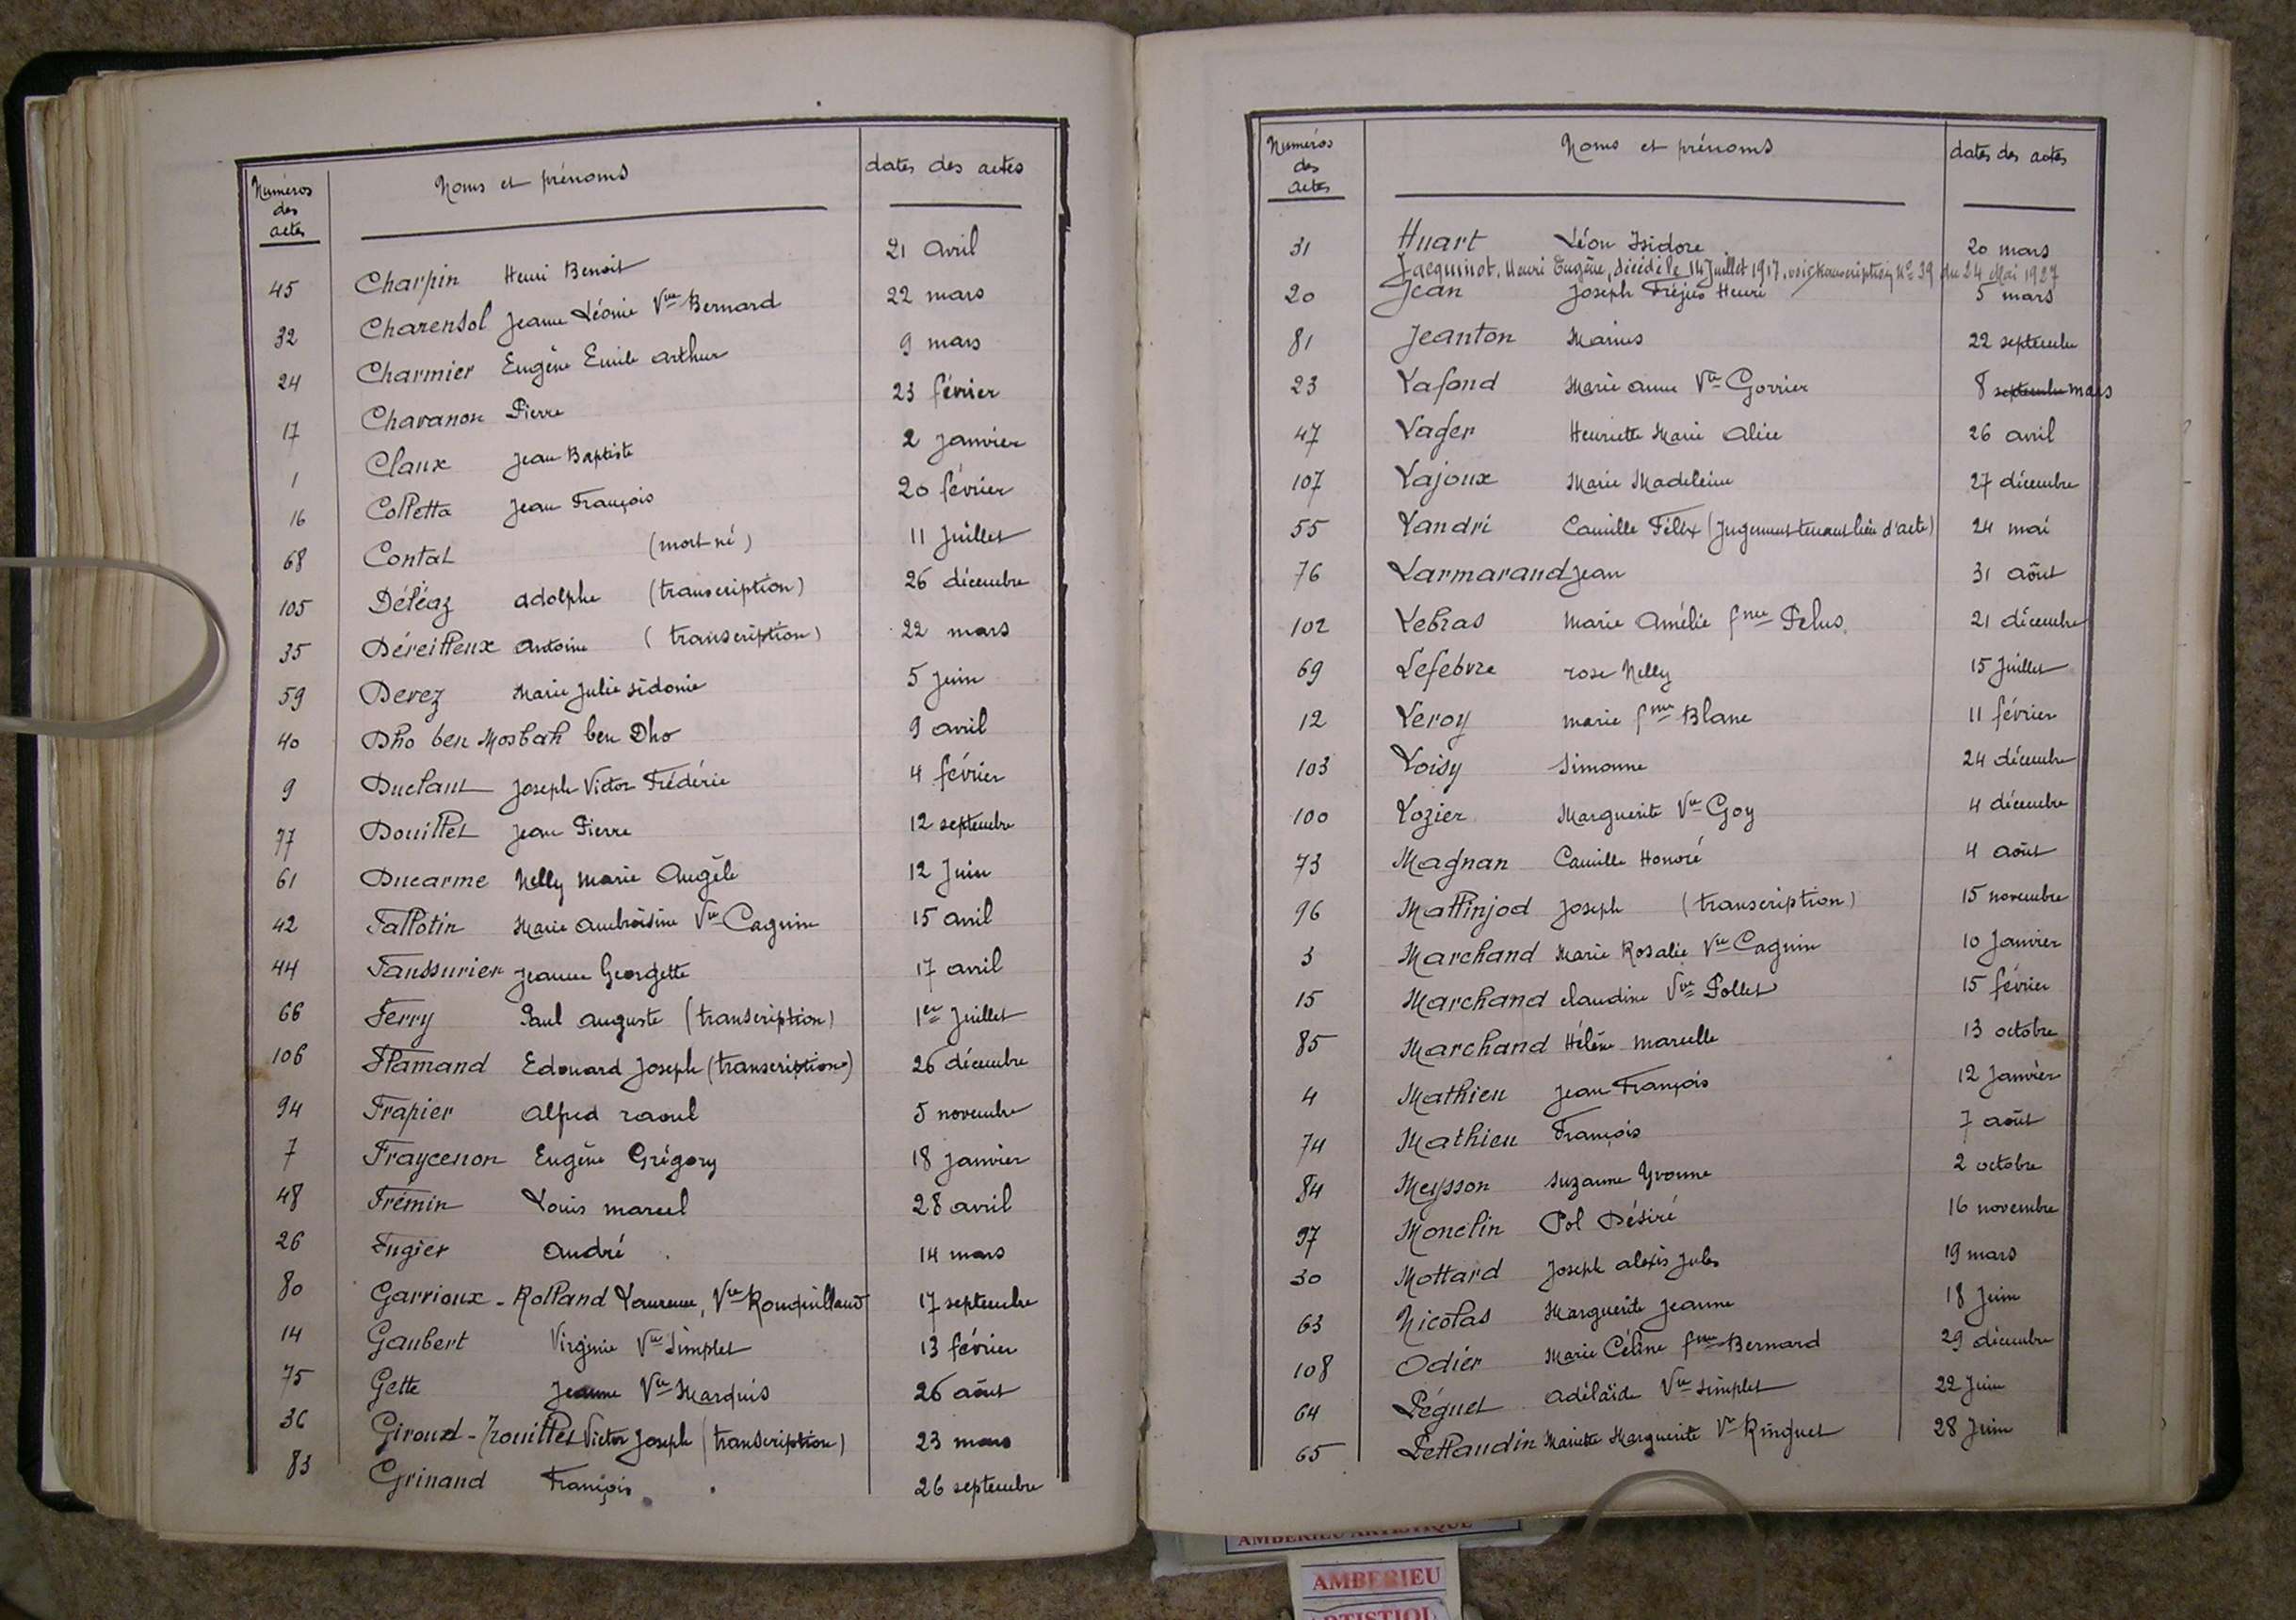 Numéros des actes | Noms et prénoms | dates des actes
45 Charpin Henri Benoit 21 avril
32 Charensol Jeanne Léonie Vve Bernard 22 mars
24 Charmier Eugène Emile arthur 9 mars
17 Chavanon Pierre 23 février
1 Claux Jean Baptiste 2 janvier
16 Colletta Jean François 20 février
68 Contat (mort né) 11 Juillet
105 Déléaz adolphe (transcription) 26 décembre
35 Déreilleux Antoine (transcription) 22 mars
59 Devez Marie Julie sidonie 5 juin
40 Dho ben Mosbah ben Dho 9 avril
9 Duclaut Joseph Victor Frédéric 4 février
77 Douillet Jean Pierre 12 septembre
61 Ducarme Nelly Marie Angèle 12 Juin
42 Fallotin Marie ambroisine Vve Caguin 15 avril
44 Faussurier Jeanne Georgette 17 avril
66 Ferry Paul auguste (transcription) 1er Juillet
106 Flamand Edouard Joseph (transcription) 26 décembre
94 Frapier alfred raoul 5 novembre
7 Fraycenon Eugène Grégory 18 janvier
48 Frémin Louis marcel 28 avril
26 Fugier andré 14 mars
80 Garrioux - Rolland Laurence, Vve Rouquillaud 17 septembre
14 Gaubert Virginie Vve Simplet 13 février
75 Gette Jeanne Vve Marquis 26 août
36 Giroud-Trouillet Victor Joseph (transcription) 23 mars
83 Grinand François 26 septembre
Numéros des actes | Noms et prénoms | dates des actes
31 Huart Léon Isidore 20 mars
Jacquinot, Henri Eugène, décédé le 14 Juillet 1917, voir transcription No 39 du 24 Mai 1927
20 Jean Joseph Fréjus Henri 5 mars
81 Jeanton Marius 22 septembre
23 Lafond Marie anne Ve Gorrier 8 septembre mars
47 Lager Henriette Marie Alice 26 avril
107 Lajoux Marie Madeleine 27 décembre
55 Landri Camille Félix (Jugement tenant lieu d'acte) 24 mai
76 Larmarand Jean 31 août
102 Lebras Marie Amélie fme Pelus 21 décembre
69 Lefebvre rose Nelly 15 Juillet
12 Leroy marie fme Blanc 11 février
103 Loisy Simonne 24 décembre
100 Lozier Marguerite Vve Goy 4 décembre
73 Magnan Camille Honoré 4 août
96 Mallinjod Joseph (transcription) 15 novembre
3 Marchand Marie Rosalie Vve Caguin 10 Janvier
15 Marchand claudine Vve Pollet 15 février
85 Marchand Hélène marcelle 13 octobre
4 Mathieu Jean François 12 Janvier
74 Mathieu François 7 août
84 Meysson suzanne Yvonne 2 octobre
97 Monclin Pol Désiré 16 novembre
30 Mottard Joseph alexis Jules 19 mars
63 Nicolas Marguerite Jeanne 18 Juin
108 Odier Marie Céline fme Bernard 29 décembre
64 Péguet adélaïde Vve simplet 22 Juin
65 Pellaudin Mariette Marguerite Ve Ringuet 28 Juin
AMBERIEU ARTISTIQUE
AMBERIEU